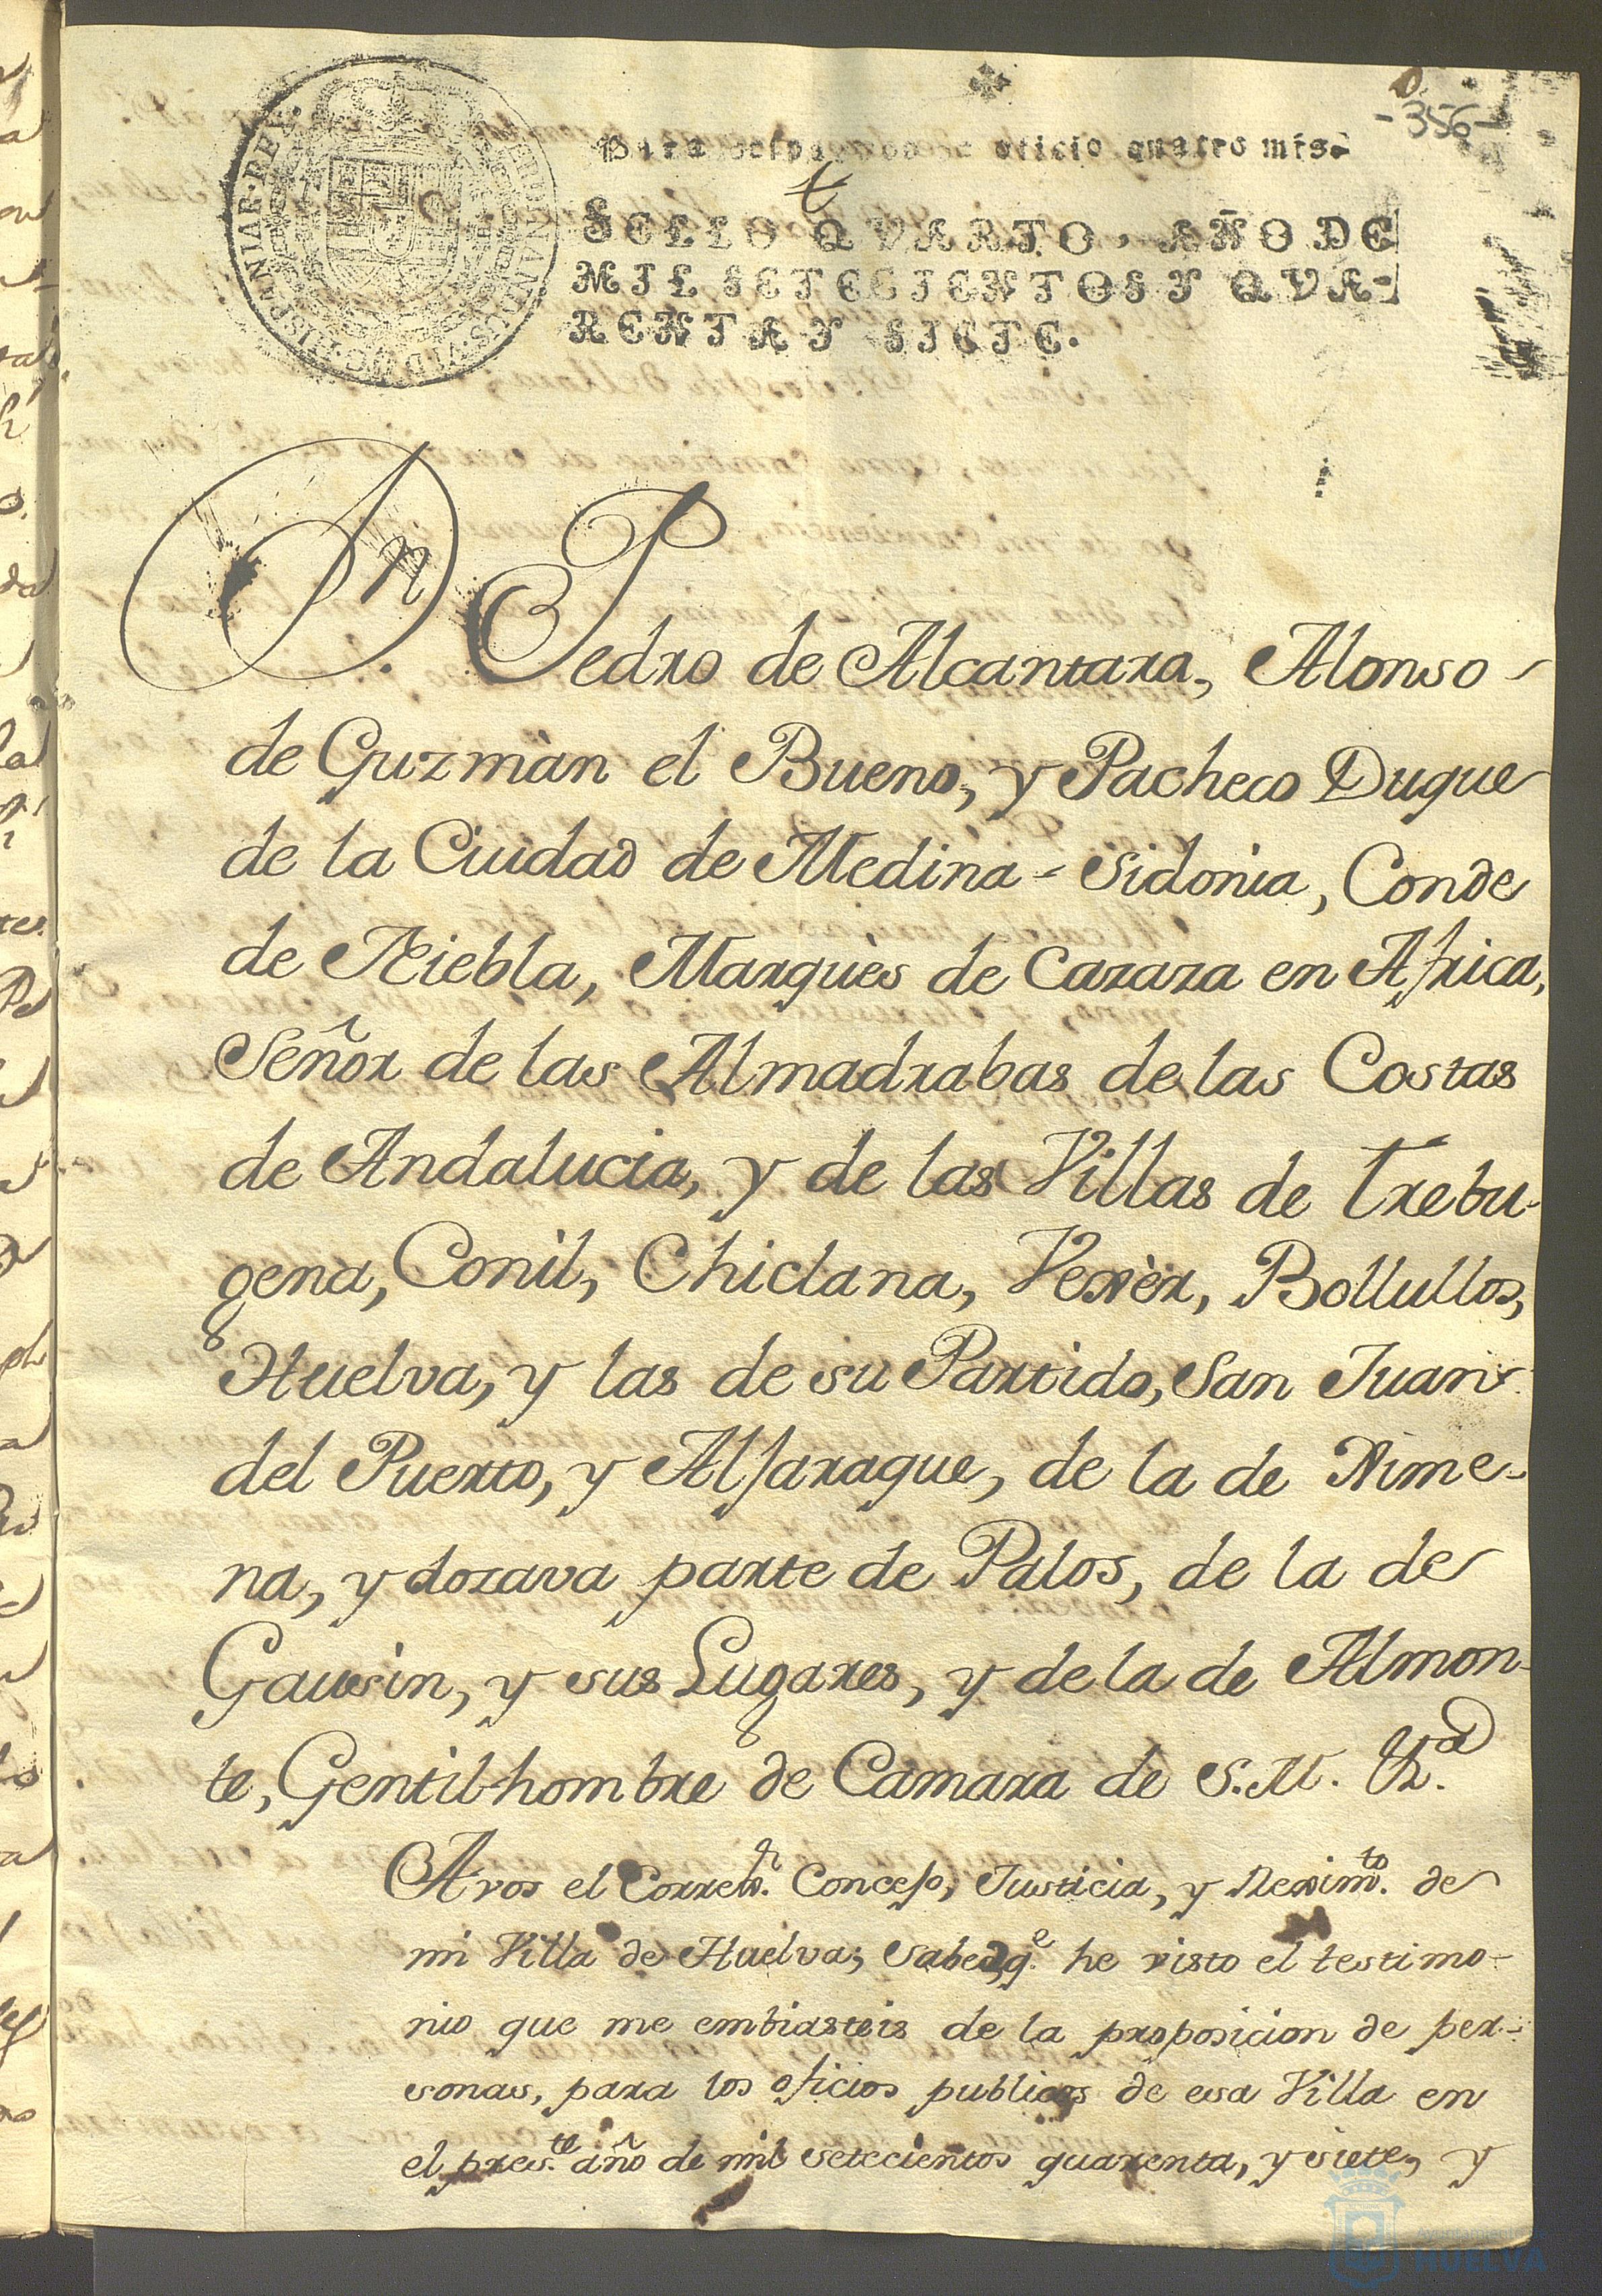 -356-
Para despachos de oficio quatro mrs.
SELLO QVARTO, AÑO DE
MIL SETECIENTOS Y QVA-
RENTA Y SIETE.
Dn. Pedro de Alcantara, Alonso
de Guzmàn el Bueno, y Pacheco Duque
de la Ciudad de Medina-Sidonia, Conde
de Niebla, Marquès de Cazaza en Africa,
Señor de las Almadrabas de las Costas
de Andalucia, y de las Villas de Trebu-
gena, Conil, Chiclana, Vexèr, Bollullos,
Huelva, y las de su Partido, San Juan
del Puerto, y Alfaraque, de la de Xime-
na, y dozava parte de Palos, de la de
Gausin, y sus Lugares, y de la de Almon-
te, Gentil-hombre de Camara de S.M. &a.
A vos el Correxr. Concejo, Justicia, y Reximto. de
mi Villa de Huelva; sabed, qe. he visto el testimo-
nio que me embiasteis de la proposicion de per-
sonas, para los oficios publicos de esa Villa en
el preste. año de mil setecientos quarenta, y siete, y
Ayuntamiento de
HUELVA